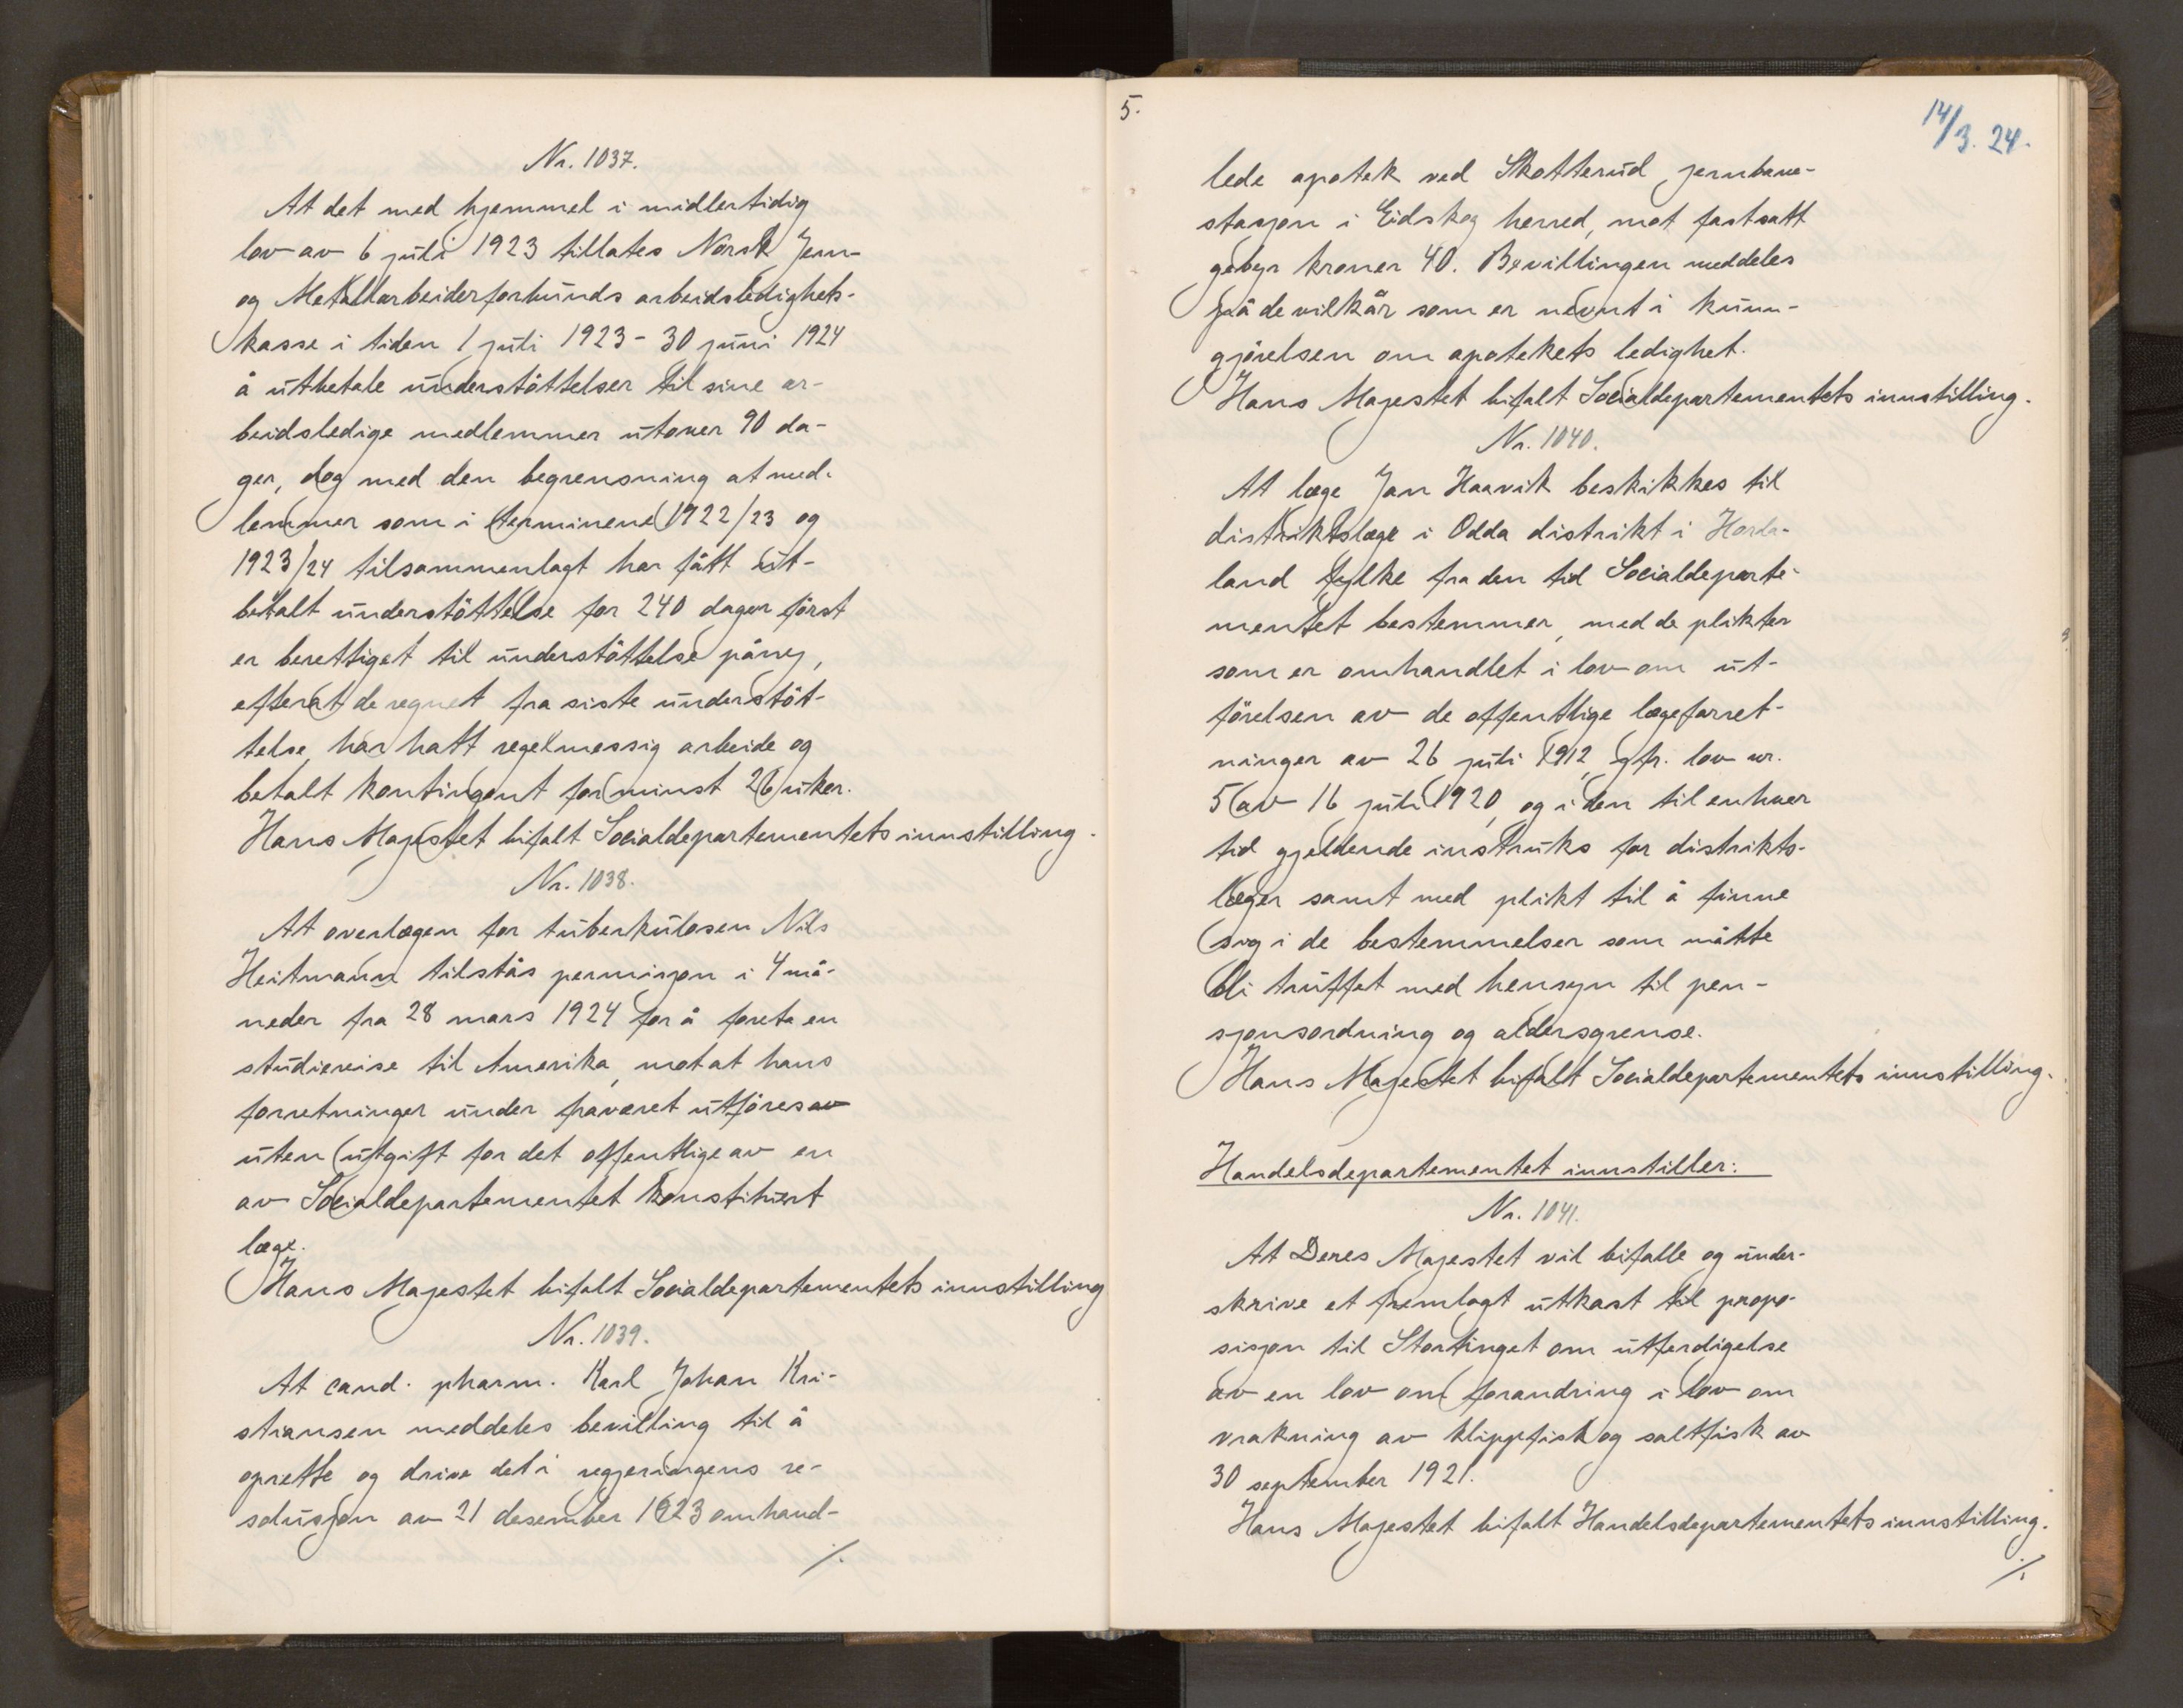 Nr. 1037.
At det med hjemmel i midlertidig
lov av 6 juli 1923 tillates Norsk Jern-
og Metallarbeiderforbunds arbeidsledighets-
kasse i tiden 1 juli 1923 - 30 juni 1924
å utbetale understöttelser til sine ar-
beidsledige medlemmer utover 90 da-
ger, dog med den begrensning at med-
lemmer som i terminene 1922/23 og
1923/24 tilsammenlagt har fått ut-
betalt understöttelse for 240 dager först
er berettiget til understöttelse påny,
efterat de regnet fra siste understöt-
telse, har hatt regelmessig arbeide og
betalt kontingent for minst 26 uker.
Hans Majestet bifalt Socialdepartementets innstilling.
Nr. 1038.
At overlægen for tuberkulosen Nils
Heitmann tilstås permisjon i 4 må-
neder fra 28 mars 1924 for å foreta en
studiereise til Amerika, mot at hans
forretninger under fraværet utföres av
uten utgift for det offentlige av en
av Socialdepartementet konstituert
læge.
Hans Majestet bifalt Socialdepartementets innstilling
Nr. 1039.
At cand. pharm. Karl Johan Kri-
stiansen meddeles bevilling til å
oprette og drive det i regjeringens re-
solusjon av 21 desember 1923 omhand-
./.
5.
14/3. 24.
lede apotek ved Skotterud jernbane-
stasjon i Eidskog herred, mot fastsatt
gebyr kroner 40. Bevillingen meddeles
på de vilkår som er nevnt i kunn-
gjörelsen om apotekets ledighet.
Hans Majestet bifalt Socialdepartementets innstilling.
Nr. 1040.
At læge Jan Haavik beskikkes til
distriktslæge i Odda distrikt i Horda-
land fylke fra den tid Socialdeparte-
mentet bestemmer, med de plikter
som er omhandlet i lov om ut-
förelsen av de offentlige lægeforret-
ninger av 26 juli 1912, jfr. lov nr.
5 av 16 juli 1920, og i den til enhver
tid gjeldende instruks for distrikts-
læger samt med plikt til å finne
sig i de bestemmelser som måtte
bli truffet med hensyn til pen-
sjonsordning og aldersgrense.
Hans Majestet bifalt Socialdepartementets innstilling.
Handelsdepartementet innstiller:
Nr. 1041.
At Deres Majestet vil bifalle og under-
skrive et fremlagt utkast til propo-
sisjon til Stortinget om utferdigelse
av en lov om forandring i lov om
vrakning av klippfisk og saltfisk av
30 september 1921.
Hans Majestet bifalt Handelsdepartementets innstilling.
./.